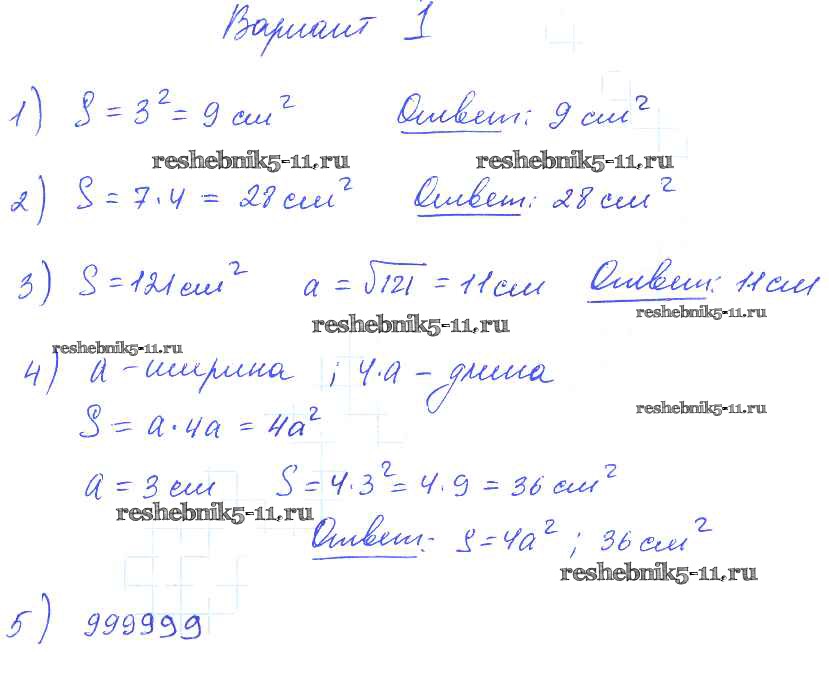 Вариант 1
1) S = 3² = 9 см² Ответ: 9 см²
reshebnik5-11.ru reshebnik5-11.ru
2) S = 7·4 = 28 см² Ответ: 28 см²
3) S = 121 см² a = √121 = 11 см Ответ: 11 см
reshebnik5-11.ru reshebnik5-11.ru
reshebnik5-11.ru
4) a - ширина ; 4·a - длина
reshebnik5-11.ru
S = a·4a = 4a²
a = 3 см S = 4·3² = 4·9 = 36 см²
reshebnik5-11.ru
Ответ: S = 4a² ; 36 см²
reshebnik5-11.ru
5) 999999